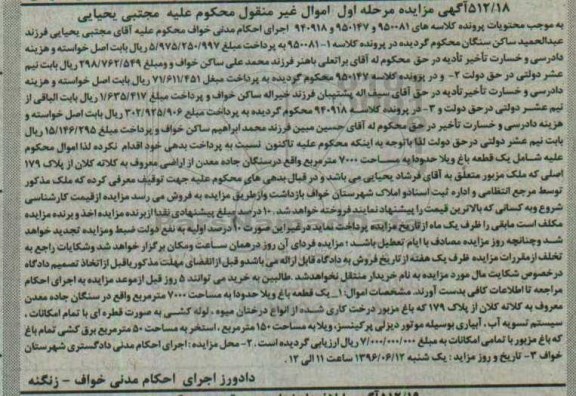 ۵۱۲/۱۸آگهی مزایده مرحله اول اموال غیر منقول محکوم علیه مجتبی یحیایی
به موجب محتویات پرونده کلاسه های ۹۵۰۰۸۱ و ۹۵۰۱۴۷ و ۹۴۰۹۱۸ اجرای احکام مدنی خواف محکوم علیه آقای مجتبی یحیایی فرزند
عبدالحمید ساکن سنگان محکوم گردیده در پرونده کلاسه ۱- ۹۵۰۰۸۱ به پرداخت مبلغ ۵/۹۷۵/۲۵۰/۹۹۷ ریال بابت اصل خواسته و هزینه
دادرسی و خسارت تأدیه در حق محکوم له آقای براتعلی باهنر فرزند محمد علی ساکن خواف و ومبلغ ۲۹۸/۷۶۲/۵۴۹ ریال بابت نیم
عشر دولتی در حق دولت ۲- و در پرونده کلاسه ۹۵۰۱۴۷ محکوم گردیده به پرداخت مبلغ ۷۱/۶۱۱/۴۵۱ ریال بابت اصل خواسته و هزینه
دادرسی و خسارت تأخیر تأدیه در حق آقای سیف اله پشتیبان فرزند خیراله ساکن خواف و پرداخت مبلغ ۱/۶۳۵/۴۱۷ ریال بابت الباقی از
نیم عشر دولتی درحق دولت و ۳- در پرونده کلاسه ۹۴۰۹۱۸ محکوم گردیده به پرداخت مبلغ ۳۰۲/۹۲۵/۹۰۶ ریال بابت اصل خواسته و
هزینه دادرسی و خسارت تأخیر در حق محکوم له آقای حسین مبین فرزند محمد ابراهیم ساکن خواف و پرداخت مبلغ ۱۵/۱۴۶/۲۹۵ ریال
بابت نیم عشر دولتی درحق دولت لذا باتوجه به اینکه محکوم علیه تاکنون نسبت به پرداخت بدهی خود اقدام نکرده لذا اموال محکوم
علیه شامل یک قطعه باغ ویلا حدودا به مساحت ۷۰۰۰ مترمربع واقع درسنگان جاده معدن از اراضی معروف به کلاته کلان از پلاک ۱۷۹
اصلی که ملک مزبور متعلق به آقای فرشاد یحیایی می باشد و در قبال بدهی های محکوم علیه جهت توقیف معرفی کرده که ملک مذکور
توسط مرجع انتظامی و اداره ثبت اسنادو املاک شهرستان خواف بازداشت وازطریق مزایده به فروش می رسد مزایده ازقیمت کارشناسی
شروع وبه کسانی که بالاترین قیمت را پیشنهاد نمایند فروخته خواهدشد. ۱۰درصد مبلغ پیشنهادی نقدا ازبرنده مزایده اخذ و برنده مزایده
مکلف است مابقی را ظرف یک ماه از تاریخ مزایده پرداخت نماید درغیراین صورت ۱۰ درصد اولیه به نفع دولت ضبط ومزایده تجدید خواهد
شد وچنانچه روز مزایده مصادف با ایام تعطیل باشد؛ مزایده فردای آن روز درهمان ساعت ومکان برگزار خواهد شد وشکایات راجع به
تخلف ازمقررات مزایده ظرف یک هفته از تاریخ فروش به دادگاه قابل ارائه می باشدو قبل ازانقضای مهلت مذکوریاقبل ازاتخاذ تصمیم دادگاه
درخصوص شکایت مال مورد مزایده به نام خریدار منتقل نخواهدشد .طالبین به خرید می توانند ۵ روز قبل ازموعد مزایده به اجرای احکام
مراجعه تا اطلاعات کافی بدست آورند. مشخصات اموال: ۱_یک قطعه باغ ویلا حدودا به مساحت ۷۰۰۰ مترمربع واقع در سنگان جاده معدن
معروف به کلاته کلان از پلاک ۱۷۹ که باغ مزبور درخت کاری شده از انواع درختان میوه ، لوله کشی به صورت قطره ای با تمام امکانات ،
سیستم تسویه آب ، آبیاری بوسیله موتور دیزلی پرکینسز، ویلا به مساحت ۱۵۰ مترمربع ،استخر به مساحت ۵۰ مترمربع برق کشی تمام باغ
که باغ مزبور با تمامی امکانات به مبلغ ۷/۰۰۰/۰۰۰/۰۰۰ ریال ارزیابی گردیده است .۲- محل مزایده: اجرای احکام مدنی دادگستری شهرستان
خواف ۳- تاریخ و روز مزاید : یک شنبه ۱۳۹۶/۰۶/۱۲ ساعت ۱۱ الی ۱۲.
دادورز اجرای احکام مدنی خواف - زنگنه